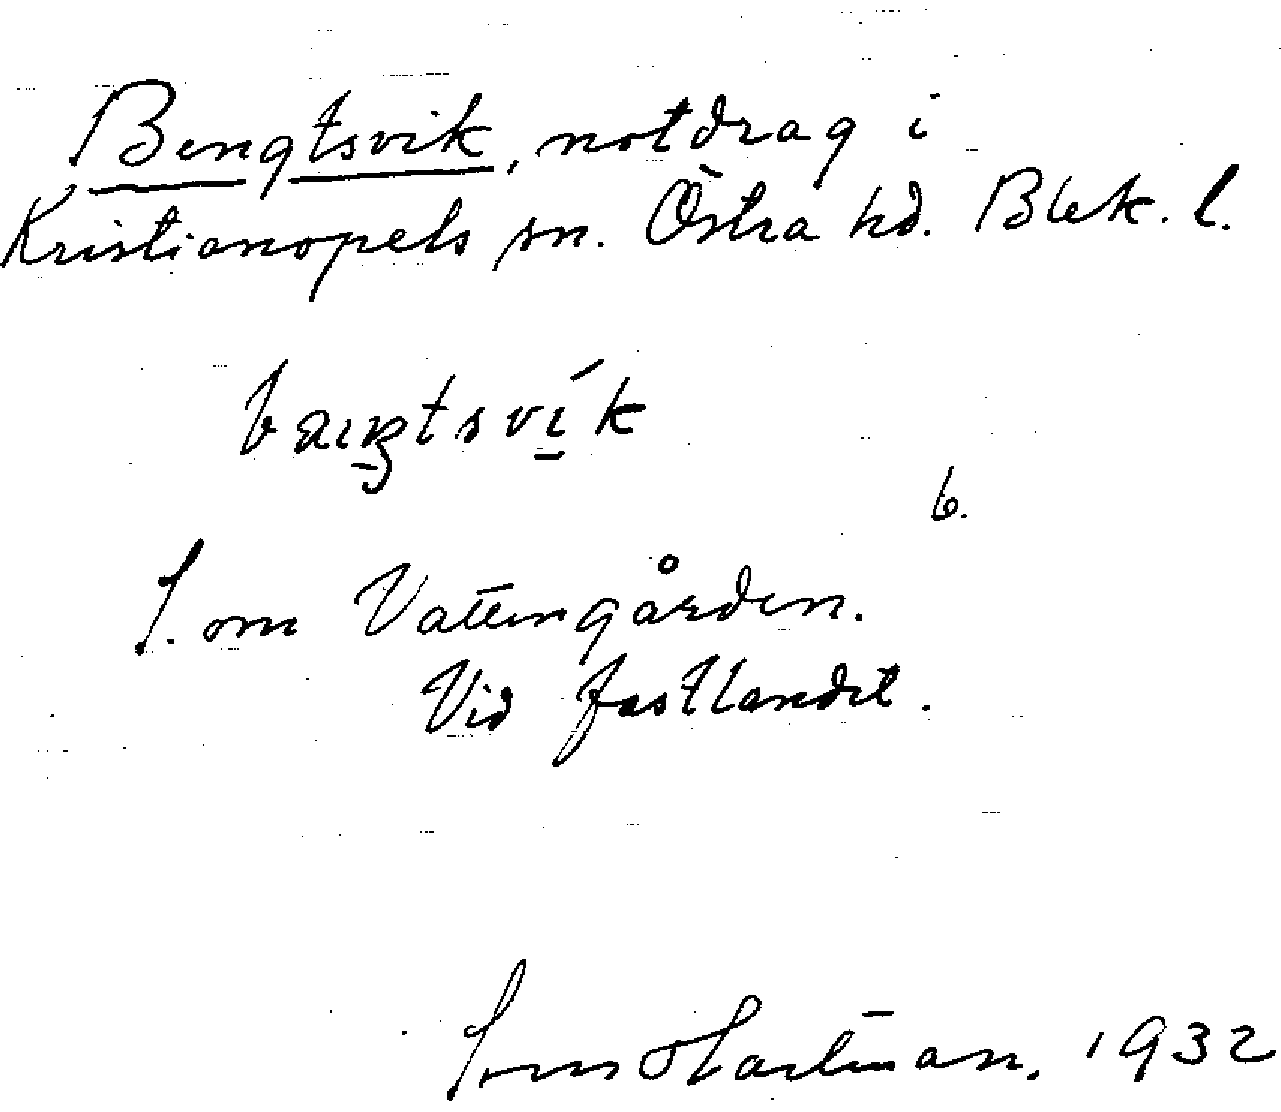 Bengtsvik, notdrag i
Kristianopels sn. Östra hd. Blek. l.
6.
S. om Vattengården.
Vid fastlandet.
Hartman. 1932